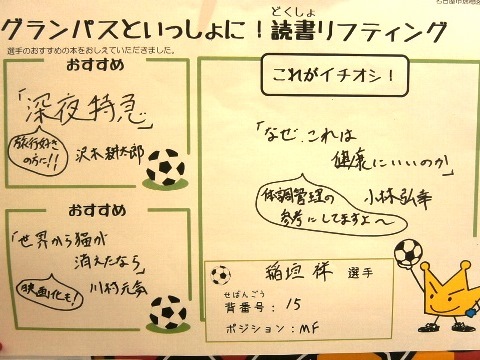 グランパスといっしょに!読書リフティング
どくしょ
選手のおすすめの本をおしえていただきました。
おすすめ
「深夜特急」
旅行好き
の方に!!
沢木耕太郎
おすすめ
「世界から猫が
消えたなら」
映画化も!
川村元気
これがイチオシ!
「なぜ、これは
健康にいいのか」
小林弘幸
体調管理の
参考にしてますよ〜
稲垣祥 選手
せばんごう
背番号: 15
ポジション: MF